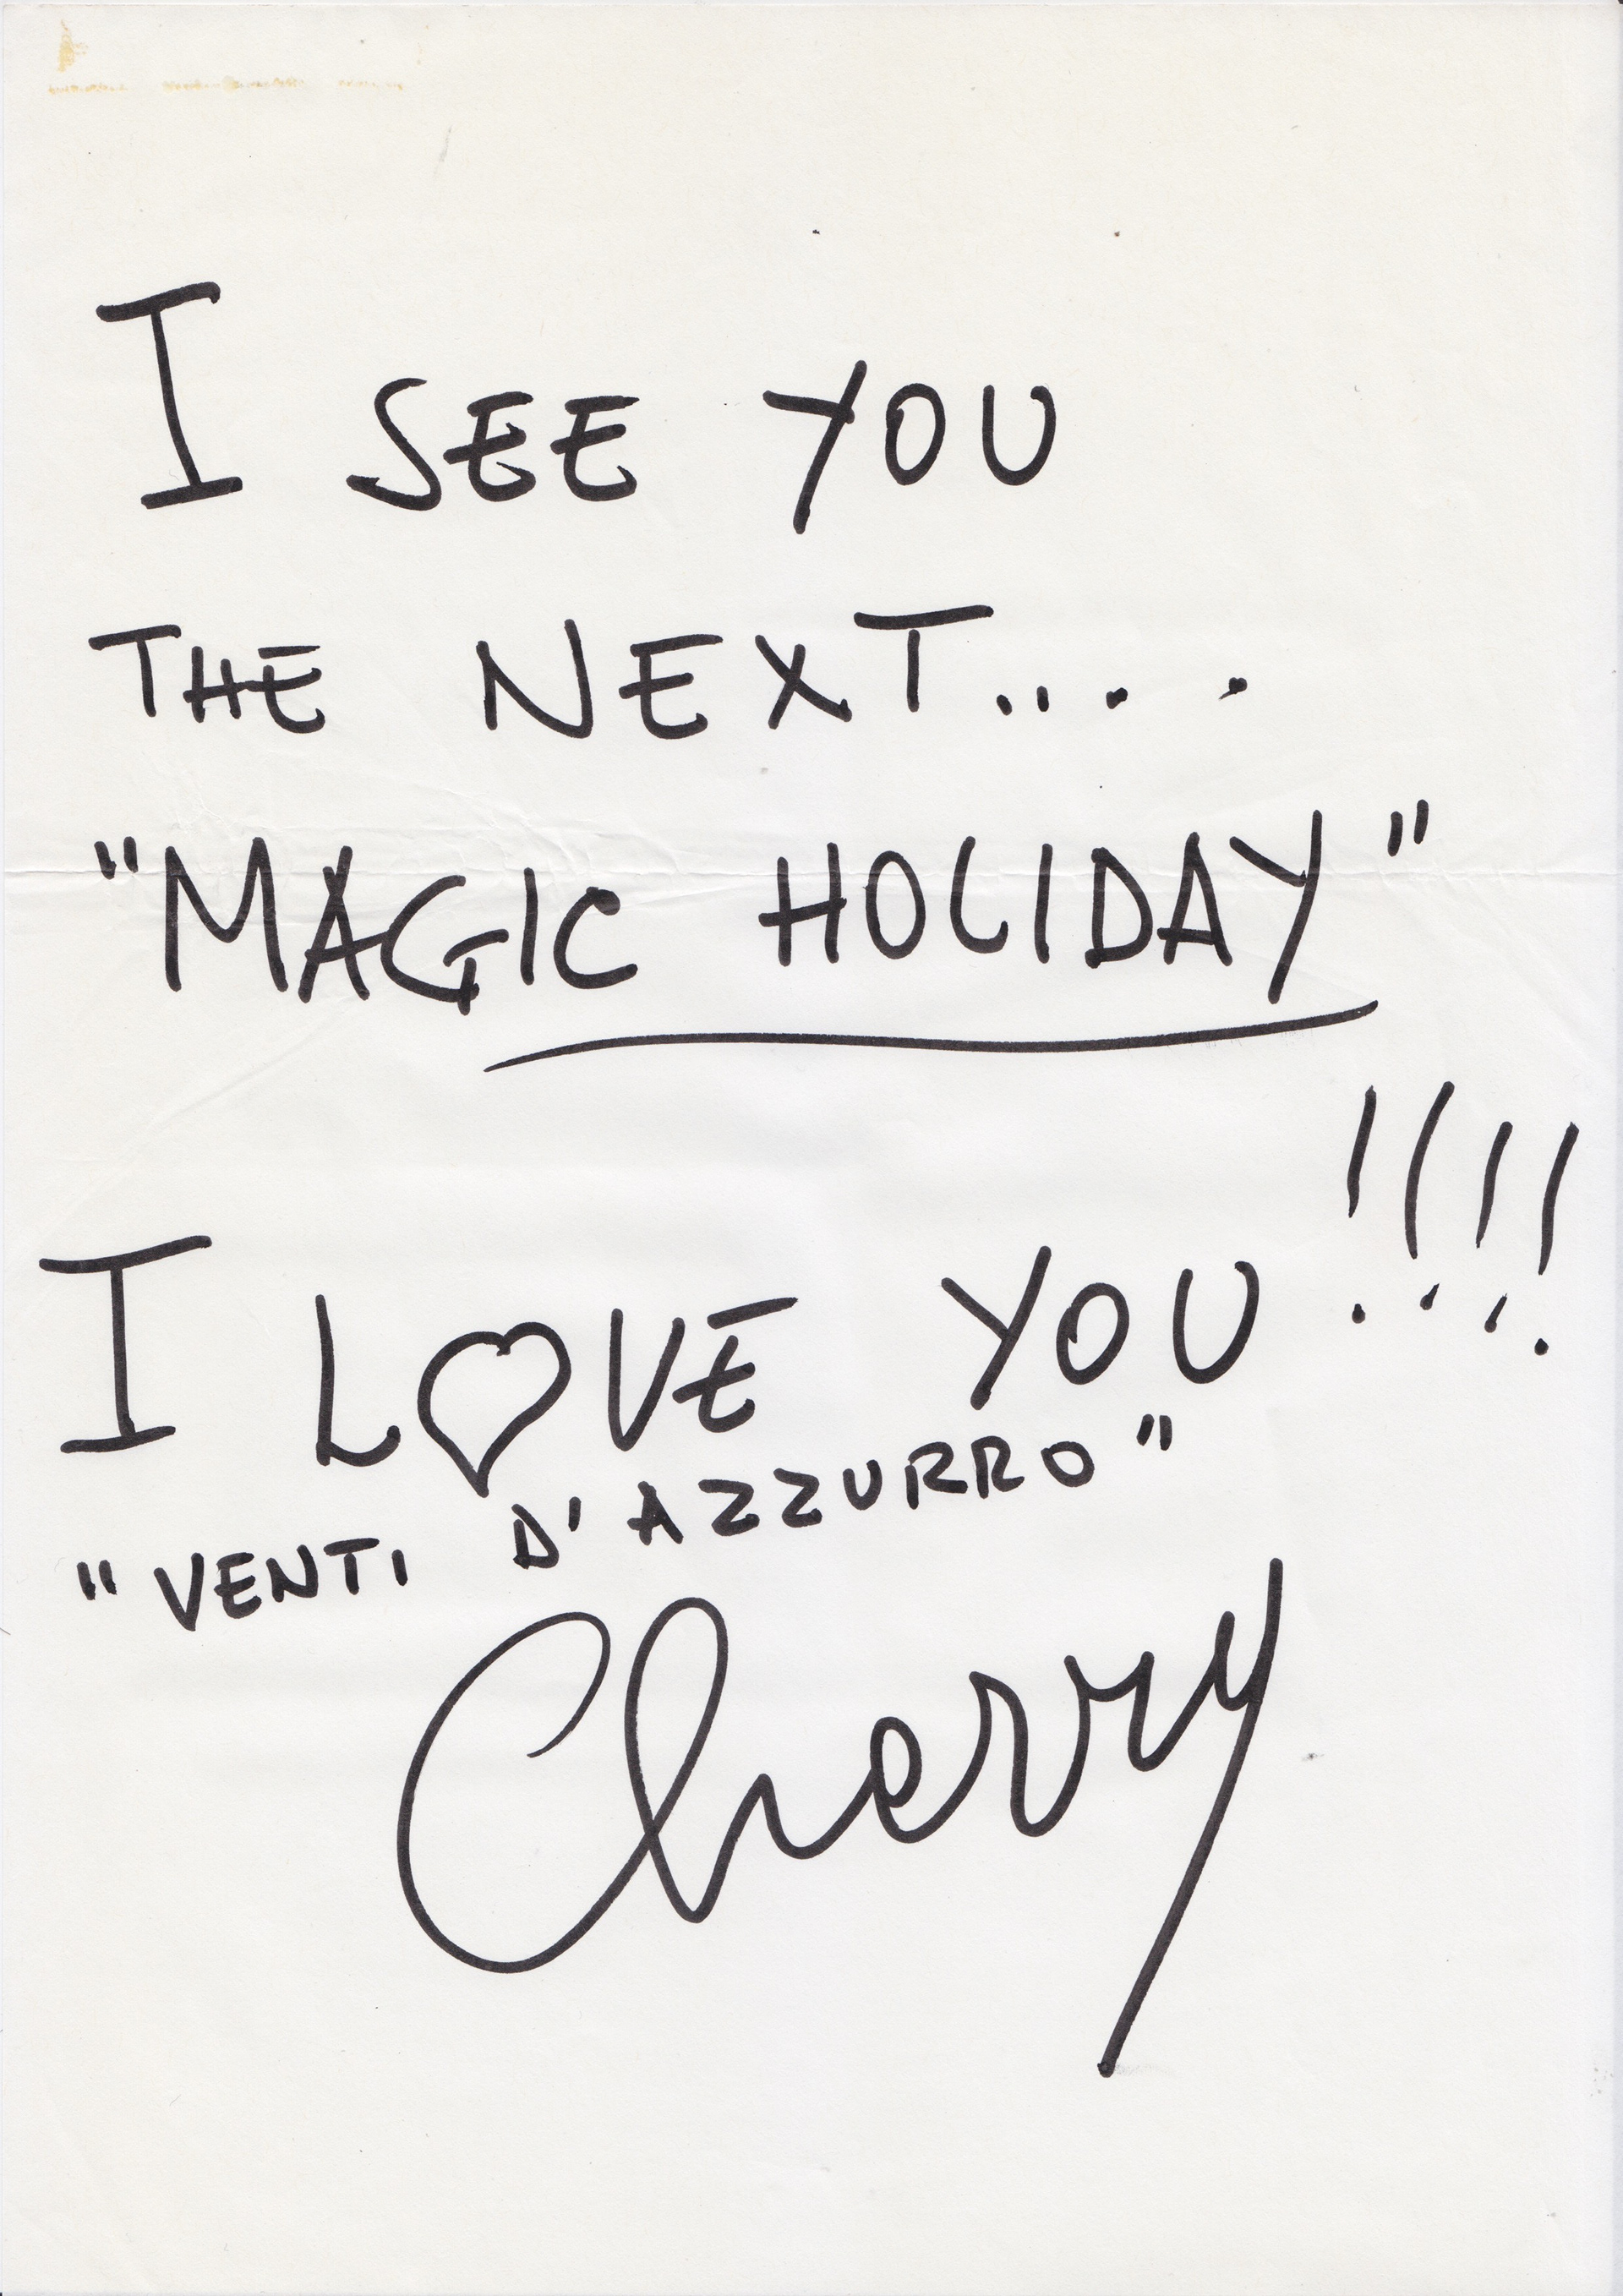 I SEE YOU
THE NEXT....
"MAGIC HOLIDAY"
I L♡VE YOU!!!!
"VENTI D'AZZURRO"
Cherry